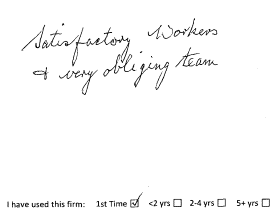 Satisfactory Workers
& very obliging team
I have used this firm: 1st Time ☑ <2 yrs ☐ 2-4 yrs ☐ 5+ yrs ☐